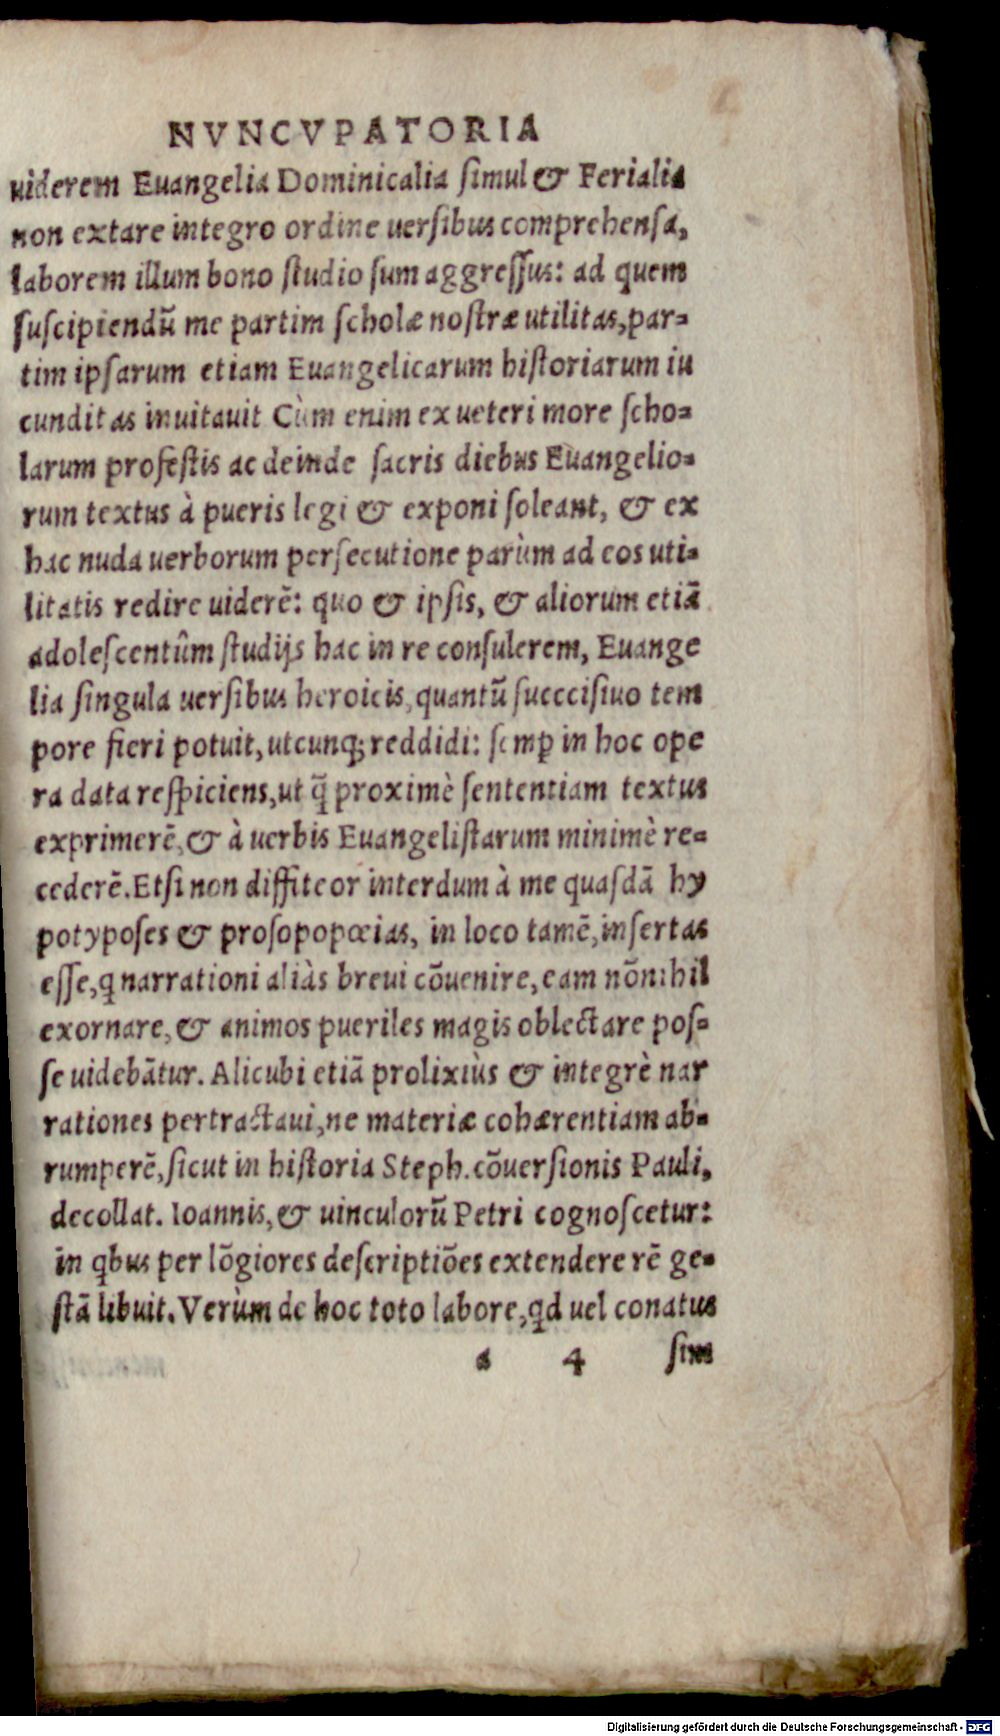 NVNCVPATORIA
uiderem Euangelia Dominicalia ſimul & Ferialia
non extare integro ordine uerſibus comprehenſa,
laborem illum bono ſtudio ſum aggreſſus: ad quem
ſuſcipiendū me partim ſcholæ noſtræ utilitas, par-
tim ipſarum etiam Euangelicarum hiſtoriarum iu
cunditas inuitauit Cùm enim ex ueteri more ſcho-
larum profeſtis ac deinde ſacris diebus Euangelio-
rum textus à pueris legi & exponi ſoleant, & ex
hac nuda uerborum perſecutione parùm ad eos uti-
litatis redire uiderē: quo & ipſis, & aliorum etiā
adoleſcentûm ſtudijs hac in re conſulerem, Euange
lia ſingula uerſibus heroicis, quantū ſucciſiuo tem
pore fieri potuit, utcunq; reddidi: ſemꝑ in hoc ope
ra data reſpiciens, ut q̃ proximè ſententiam textus
exprimerē, & à uerbis Euangeliſtarum minimè re-
cederē. Etſi non diffiteor interdum à me quaſdā hy
potypoſes & proſopopœias, in loco tamē, inſertas
eſſe, ꝗ narrationi aliàs breui cōuenire, eam nōnihil
exornare, & animos pueriles magis oblectare poſ-
ſe uidebātur. Alicubi etiā prolixiùs & integrè nar
rationes pertractaui, ne materiæ cohærentiam ab-
rumperē, ſicut in hiſtoria Steph. cōuerſionis Pauli,
decollat. Ioannis, & uinculorū Petri cognoſcetur:
in ꝗbus per lōgiores deſcriptiōes extendere rē ge-
ſtā libuit. Verùm de hoc toto labore, ꝗd uel conatus
a 4 ſim
Digitalisierung gefördert durch die Deutsche Forschungsgemeinschaft - DFG